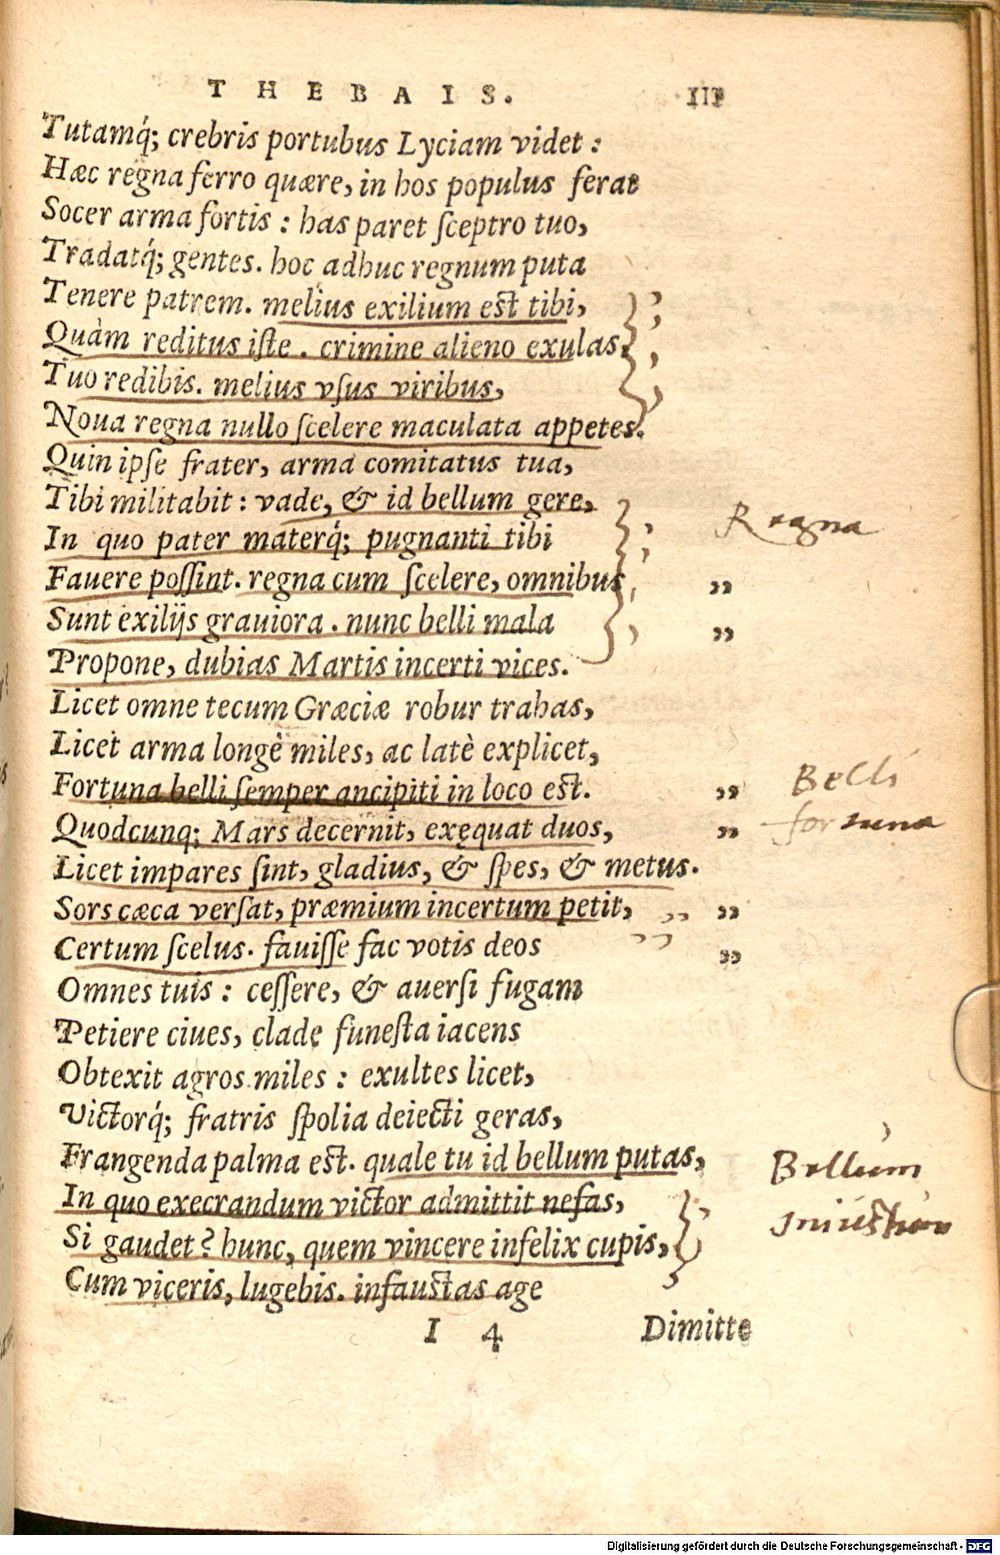 THEBAIS. III
Tutamq́; crebris portubus Lyciam videt :
Hæc regna ferro quære, in hos populus ferat
Socer arma fortis : has paret ſceptro tuo,
Tradatq́; gentes. hoc adhuc regnum puta
Tenere patrem. melius exilium est tibi,
Quàm reditus iſte . crimine alieno exulas,
Tuo redibis. melius vſus viribus,
Noua regna nullo ſcelere maculata appetes.
Quin ipſe frater, arma comitatus tua,
Tibi militabit : vade, & id bellum gere,
In quo pater materq́; pugnanti tibi
Regna
Fauere poſſint. regna cum ſcelere, omnibus „
Sunt exilijs grauiora . nunc belli mala „
Propone, dubias Martis incerti vices.
Licet omne tecum Græciæ robur trahas,
Licet arma longè miles, ac latè explicet,
Fortuna belli ſemper ancipiti in loco est. „
Belli
fortuna
Quodcunq; Mars decernit, exęquat duos, „
Licet impares ſint, gladius, & ſpes, & metus.
Sors cæca verſat, præmium incertum petit, „ „
Certum ſcelus. fauiſſe fac votis deos „ „
Omnes tuis : ceſſere, & auerſi fugam
Petiere ciues, clade funeſta iacens
Obtexit agros miles : exultes licet,
Victorq́; fratris ſpolia deiecti geras,
Frangenda palma est. quale tu id bellum putas,
Bellum
iniustum
In quo execrandum victor admittit nefas,
Si gaudet? hunc, quem vincere infelix cupis,
Cum viceris, lugebis. infaustas age
I 4 Dimitte
Digitalisierung gefördert durch die Deutsche Forschungsgemeinschaft - DFG